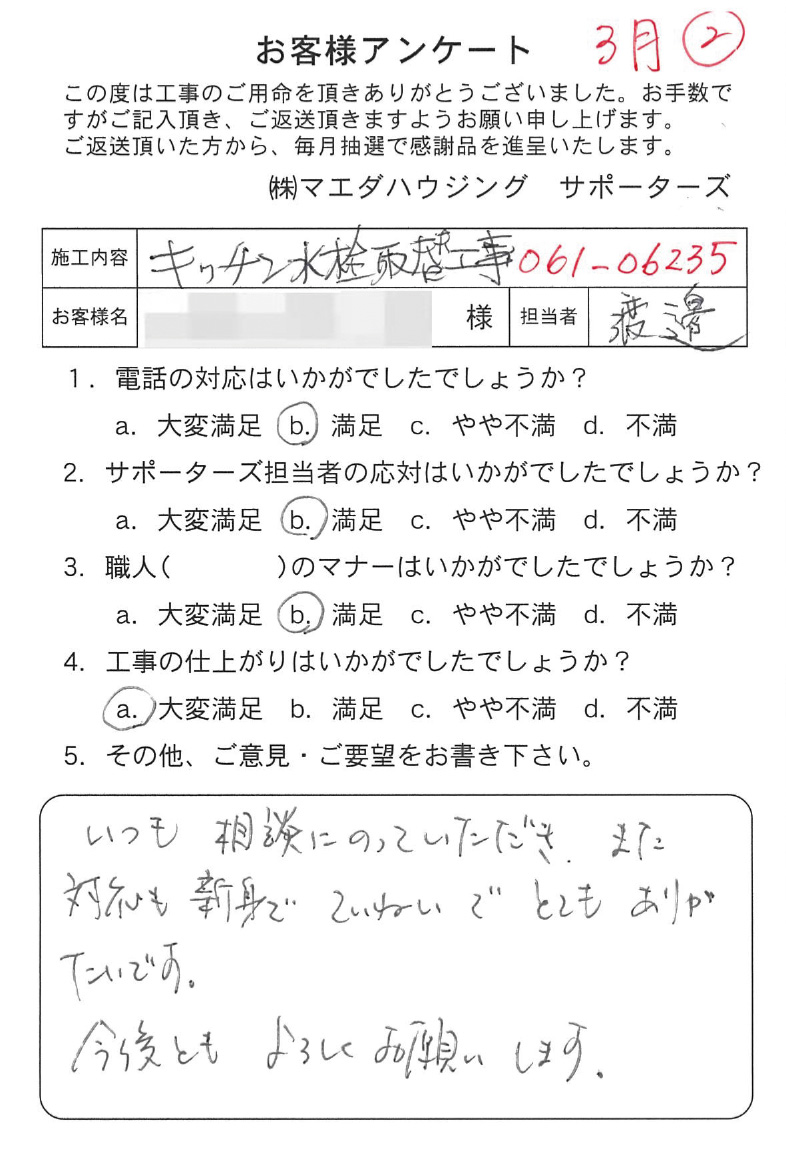 お客様アンケート 3月②
この度は工事のご用命を頂きありがとうございました。お手数で
すがご記入頂き、ご返送頂きますようお願い申し上げます。
ご返送頂いた方から、毎月抽選で感謝品を進呈いたします。
㈱マエダハウジング サポーターズ
施工内容 キッチン水栓取替工事 061-06235
お客様名 様 担当者 渡邊
1. 電話の対応はいかがでしたでしょうか？
a. 大変満足 b. 満足 c. やや不満 d. 不満
2. サポーターズ担当者の応対はいかがでしたでしょうか？
a. 大変満足 b. 満足 c. やや不満 d. 不満
3. 職人( )のマナーはいかがでしたでしょうか？
a. 大変満足 b. 満足 c. やや不満 d. 不満
4. 工事の仕上がりはいかがでしたでしょうか？
a. 大変満足 b. 満足 c. やや不満 d. 不満
5. その他、ご意見・ご要望をお書き下さい。
いつも 相談にのっていただき、また
対応も 新身で ていねいで とても ありが
たいです。
今後とも よろしく お願い します。